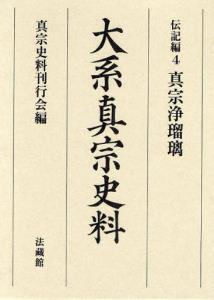 伝記編 4 真宗浄瑠璃
大系真宗史料
真宗史料刊行会編
法藏館